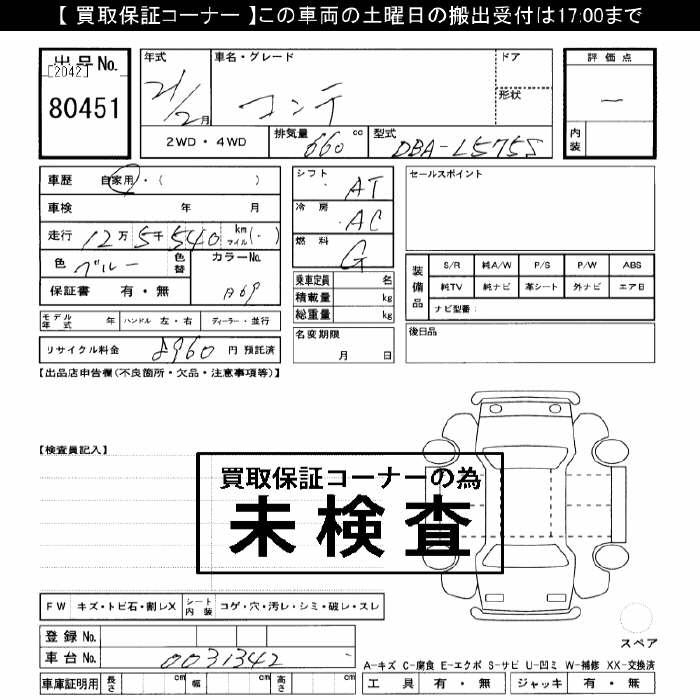 【 買取保証コーナー 】この車両の土曜日の搬出受付は17:00まで
出品No.
[2042]
80451
年式
21/2月
車名・グレード
コンテ
ドア
形状
評価点
—
内装
2WD・4WD
排気量 660 cc
型式 DBA-L575S
車歴 自家用・( )
車検 年 月
走行 12万5千540 km マイル(・)
色 ブルー 色替
カラーNo.
B69
保証書 有・無
シフト AT
冷房 AC
燃料 G
乗車定員 名
積載量 kg
総重量 kg
セールスポイント
装備品
S/R 純A/W P/S P/W ABS
純TV 純ナビ 革シート 外ナビ エアB
ナビ型番:
モデル年式 年 ハンドル 左・右 ディーラー・並行
名変期限
月 日
後日品
リサイクル料金 8960 円 預託済
【出品店申告欄(不良箇所・欠品・注意事項等)】
【検査員記入】
買取保証コーナーの為
未検査
FW キズ・トビ石・割レX シート内装 コゲ・穴・汚レ・シミ・破レ・スレ
スペア
登録No.
車台No. 0031342
A-キズ C-腐食 E-エクボ S-サビ U-凹ミ W-補修 XX-交換済
車庫証明用 長さ cm 幅 cm 高さ cm
工具 有・無 ジャッキ 有・無